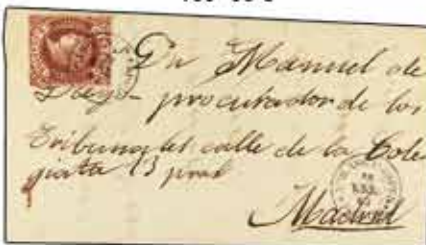 Dn Manuel de
Diego procurador de los
Tribunales calle de la Cole
giata 13 pral
Madrid